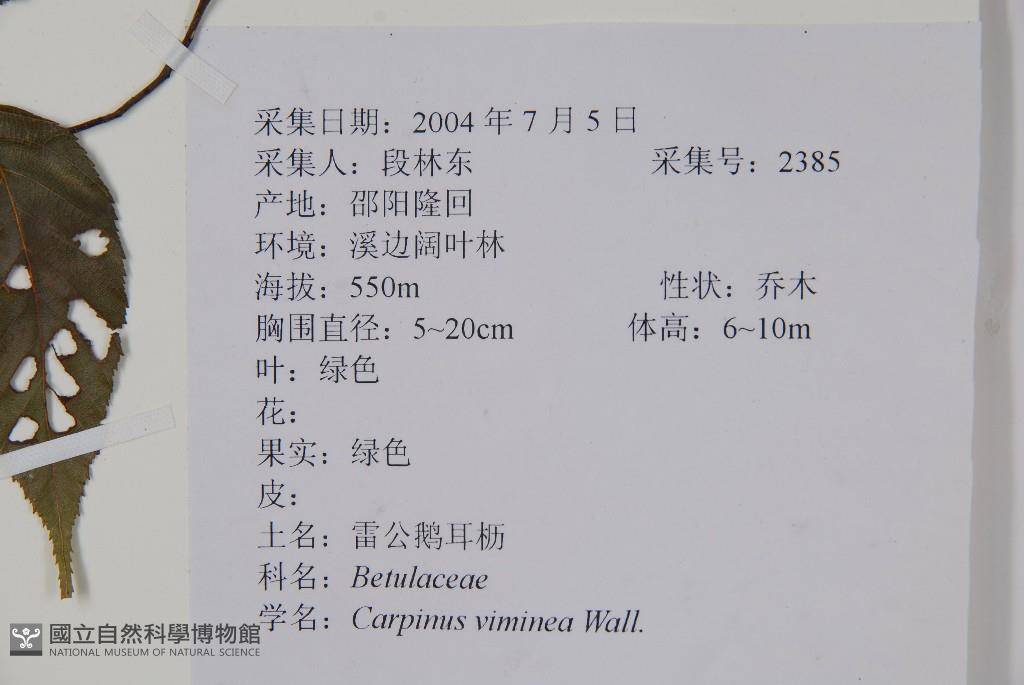 采集日期：2004 年 7 月 5 日
采集人：段林东 采集号：2385
产地：邵阳隆回
环境：溪边阔叶林
海拔：550m 性状：乔木
胸围直径：5~20cm 体高：6~10m
叶：绿色
花：
果实：绿色
皮：
土名：雷公鹅耳枥
科名：Betulaceae
学名：Carpinus viminea Wall.
國立自然科學博物館
NATIONAL MUSEUM OF NATURAL SCIENCE